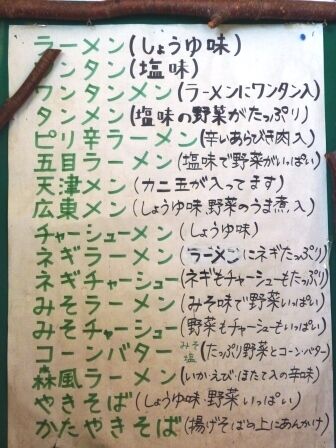 ラーメン(しょうゆ味)
ンタン(塩味)
ワンタンメン(ラーメンにワンタン入)
タンメン(塩味の野菜がたっぷり)
ピリ辛ラーメン(辛いあらびき肉入)
五目ラーメン(塩味で野菜がいっぱい)
天津メン(カニ玉が入ってます)
広東メン(しょうゆ味、野菜のうま煮入)
チャーシューメン(しょうゆ味)
ネギラーメン(ラーメンにネギたっぷり)
ネギチャーシュー(ネギもチャーシューもたっぷり)
みそラーメン(みそ味で野菜いっぱい)
みそチャーシュー(野菜もチャーシューもいっぱい)
コーンバター みそ 塩 (たっぷり野菜とコーン・バター)
森風ラーメン(いか・えび・ほたて入の辛味)
やきそば(しょうゆ味・野菜いっぱい)
かたやきそば(揚げそばの上にあんかけ)